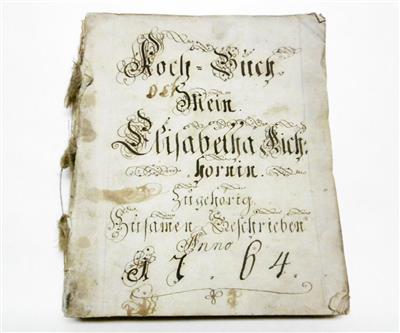 Koch = Buch
Mein
Elisabetha Eich-
hornin.
Zugehörig.
Zusamen Geschrieben
Anno
1 7. 6 4.